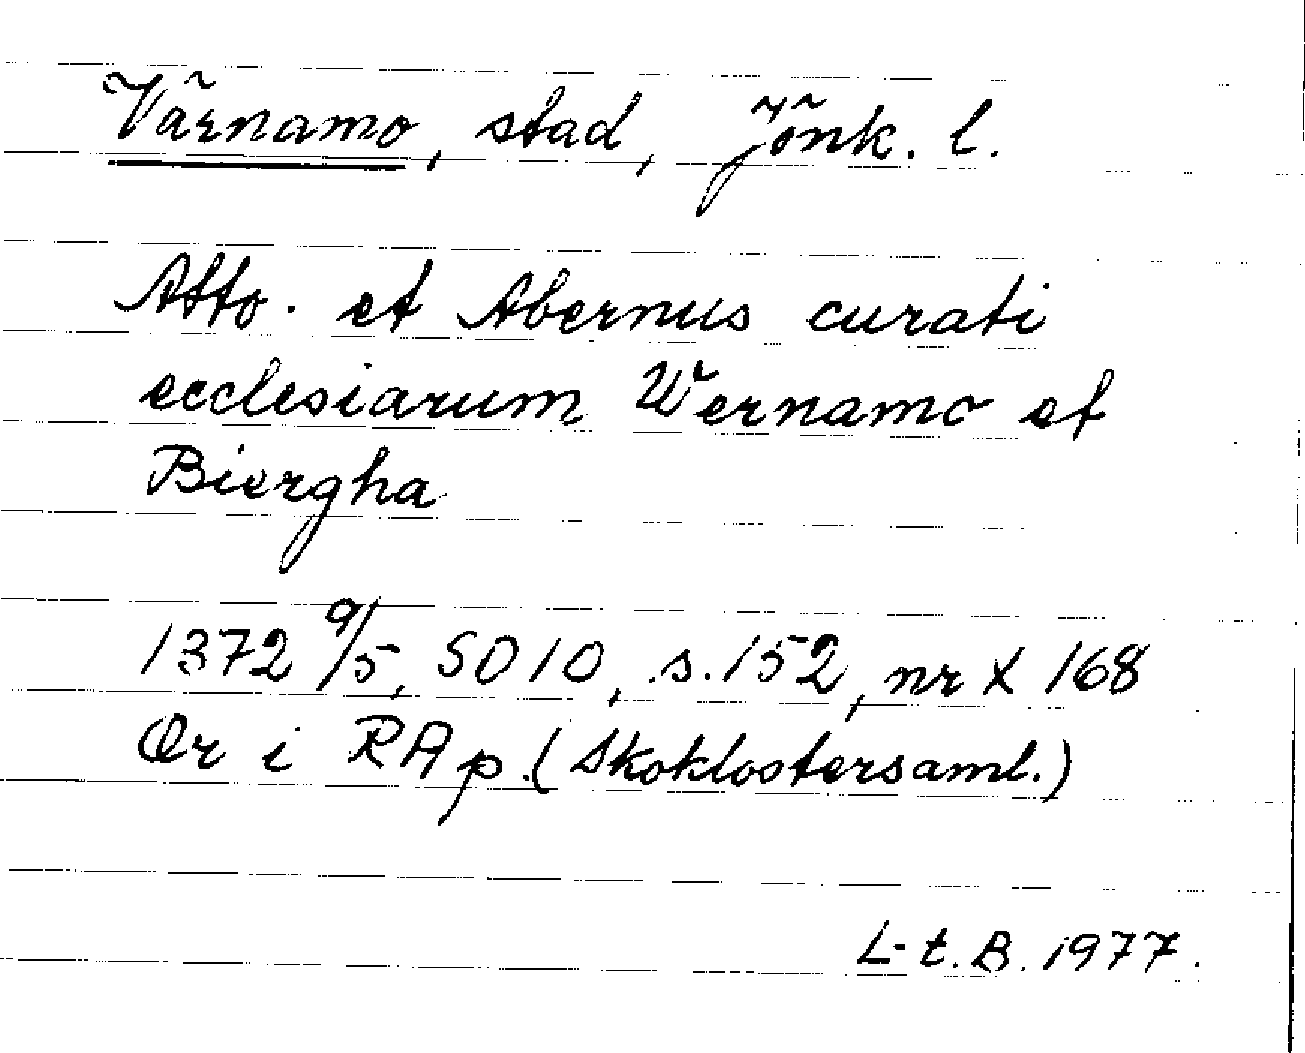 Värnamo, stad, Jönk. l.
Atto. et Abernus curati
ecclesiarum Wernamo et
Biergha
1372 9/5, SD 10, s. 152, nr X 168
Or i RAp. (Skoklostersaml.)
L-t. B. 1977.